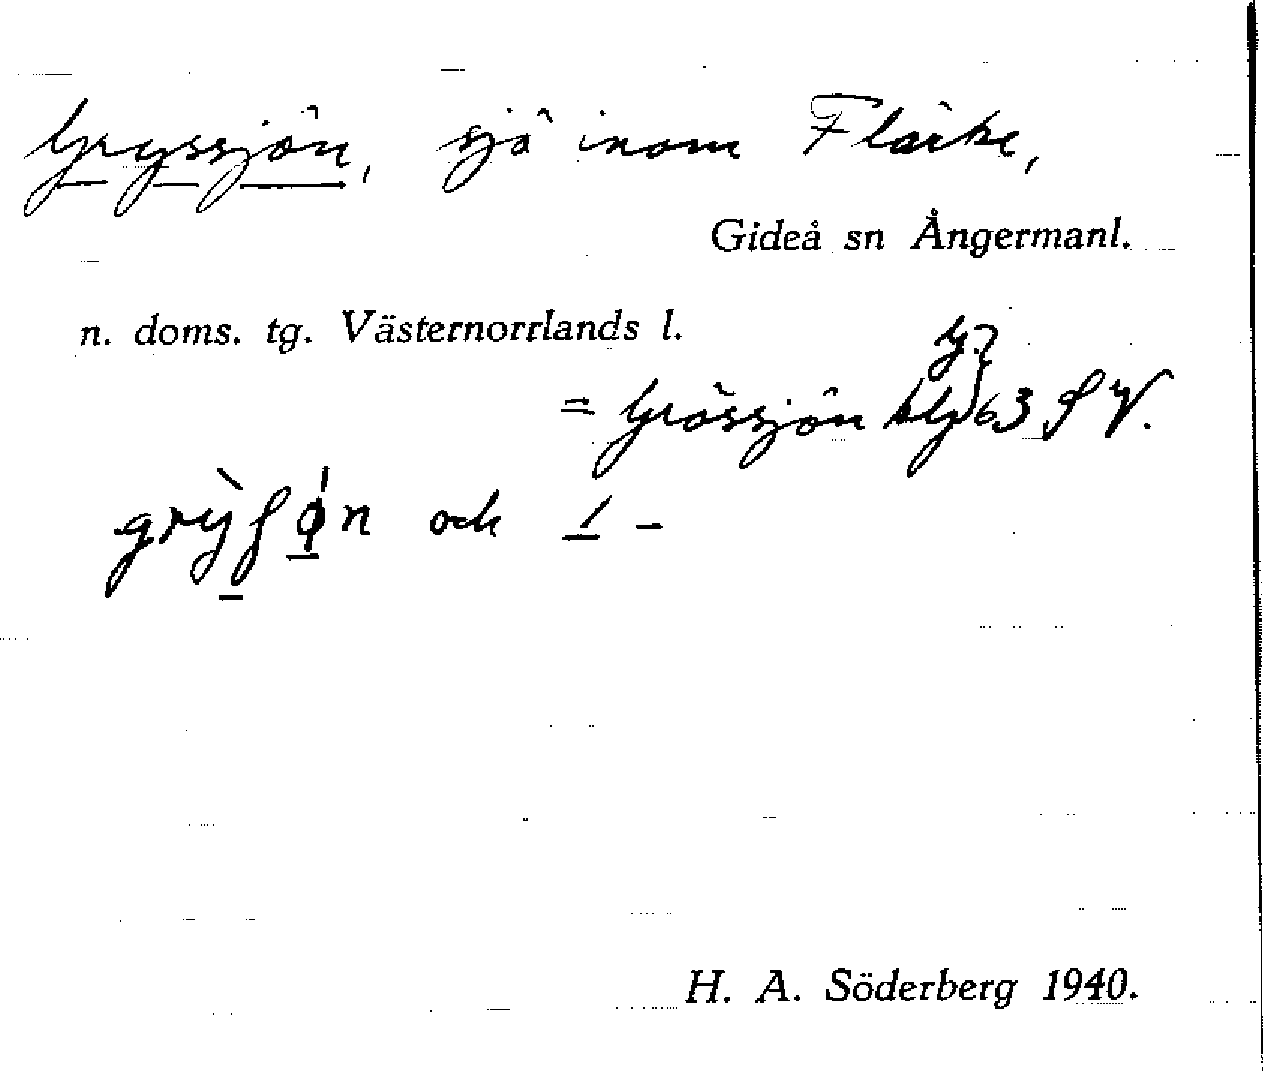 Gryssjön, sjö inom Flärke,
Gideå sn Ångermanl.
n. doms. tg. Västernorrlands l.
= Grössjön 63 SV.
och
H. A. Söderberg 1940.